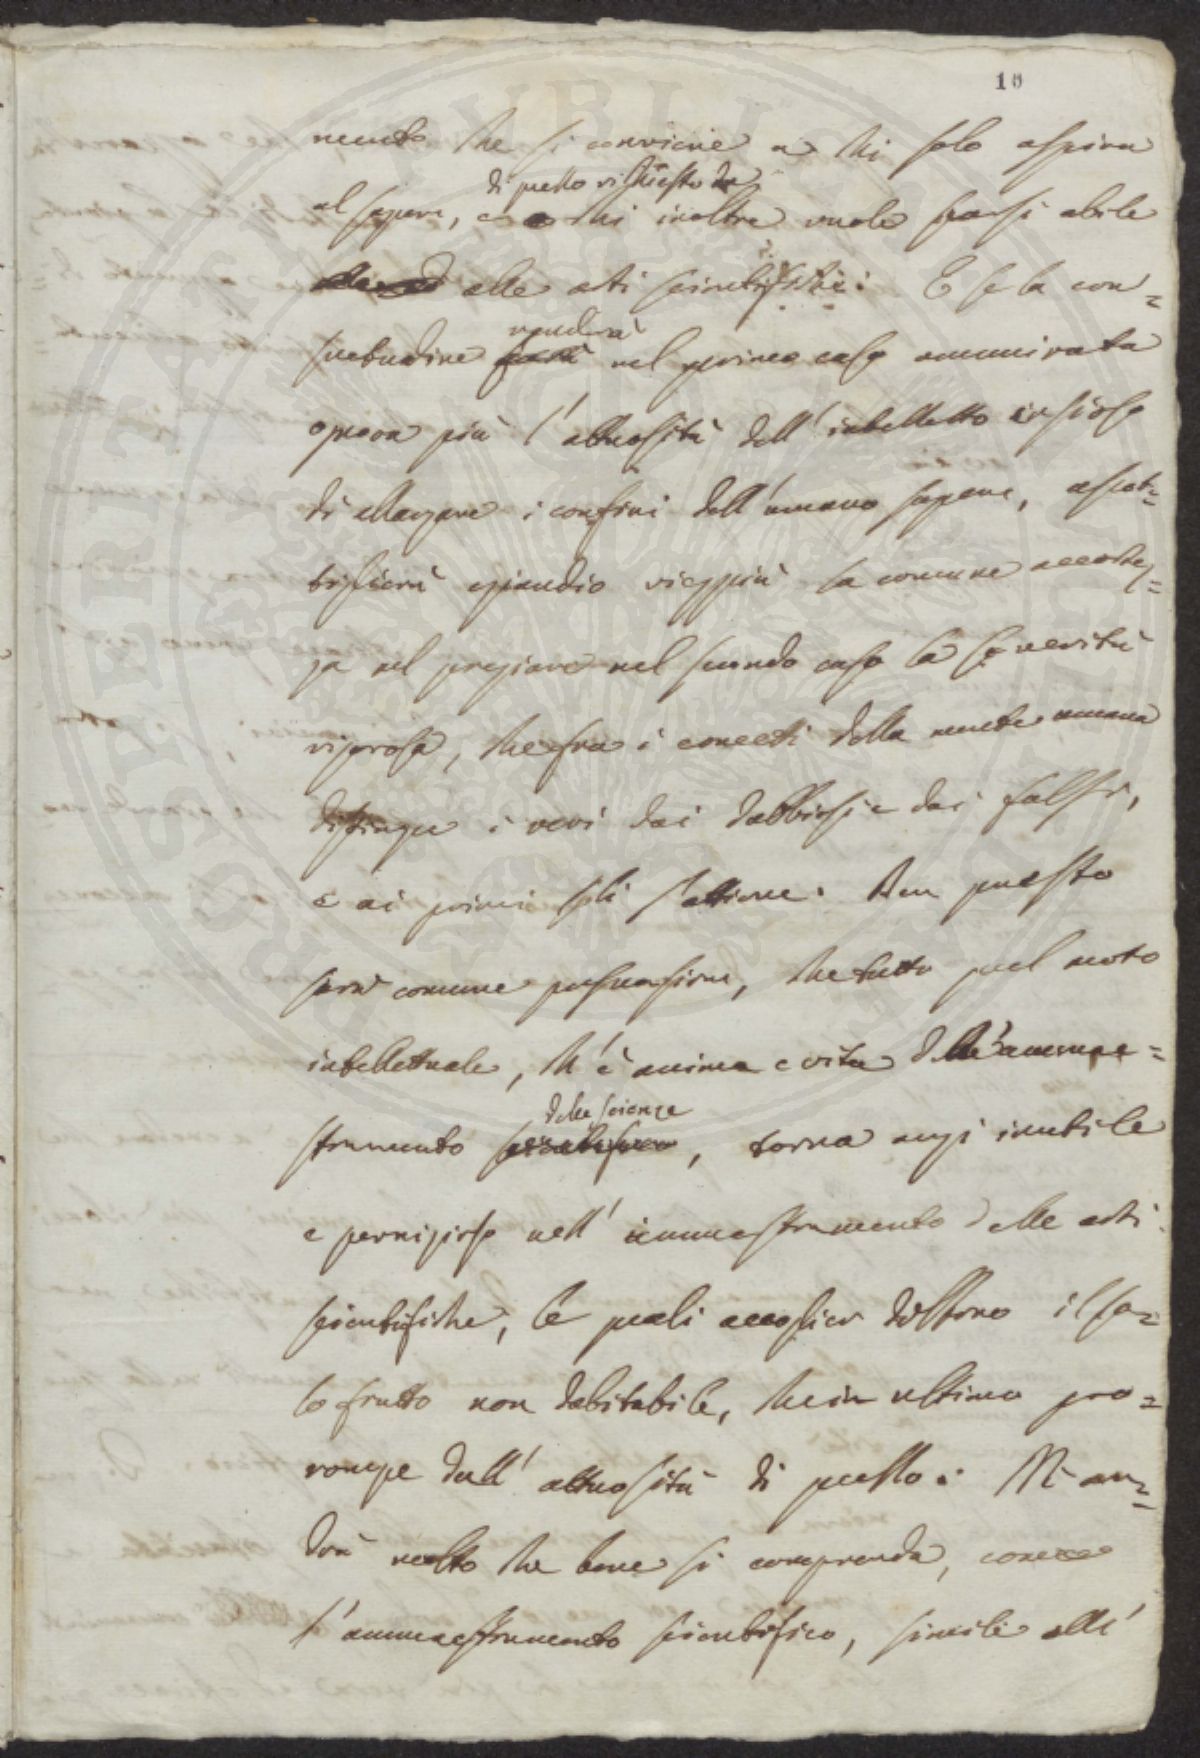 10
mento che si conviene a chi solo aspira
di quello richiesto da
al sapere, e a chi inoltre vuole farsi abile
alle arti scientifiche. E se la con=
renderà
suetudine farà nel primo caso ammirata
ognora più l'attuosità dell'intelletto
di allargare i confini dell'umano sapere,
eziandio vieppiù la comune
za nel pregiare nel secondo caso la severità
rigorosa, che fra i concetti della mente umana
distingue i veri dai dubbiosi e dai falsi,
e ai primi soli s'attiene. Ben questo
sarà comune persuasione, che tutto quel moto
intellettuale, ch'è anima e vita dell'ammae=
delle scienze
stramento scientifico, torna anzi inutile
e pernizioso nell'ammaestramento delle arti
scientifiche, le quali accoglier debbono il so=
lo frutto non dubitabile, che in ultimo pro=
rompe dall'attuosità di quello. Nè an=
drà molto che bene si comprenda, come
l'ammaestramento scientifico, simile all'